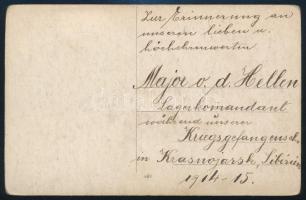 Zur Erinnerung an
unseren lieben u.
hochehrenwerten
Major v. d. Hellen
Lagerkomandant
während unserer
Kriegsgefangensch.
in Krasnojarsk, Sibirien
1914-15.